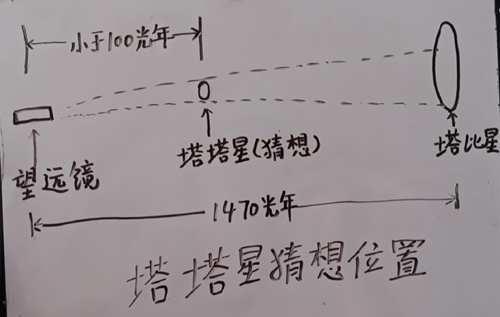 小于100光年
塔塔星(猜想)
塔比星
望远镜
1470光年
塔塔星猜想位置